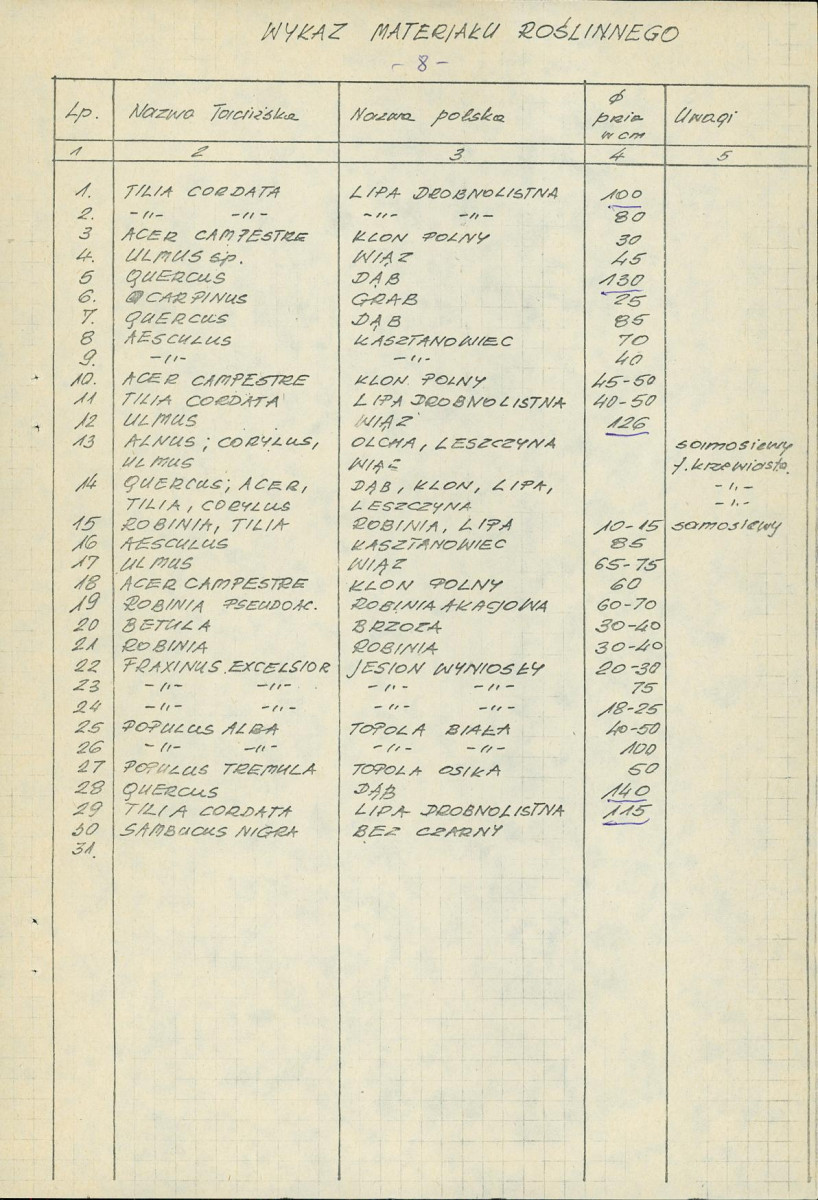 WYKAZ MATERIAŁU ROŚLINNEGO
- 8 -
Lp. Nazwa Łacińska Nazwa polska ϕ pnia w cm Uwagi
1 2 3 4 5
1. TILIA CORDATA LIPA DROBNOLISTNA 100
2. -"- -"- -"- -"- 80
3 ACER CAMPESTRE KLON POLNY 30
4. ULMUS sp. WIĄZ 45
5 QUERCUS DĄB 130
6. CARPINUS GRAB 25
7. QUERCUS DĄB 85
8 AESCULUS KASZTANOWIEC 70
9. -"- -"- 40
10. ACER CAMPESTRE KLON POLNY 45-50
11 TILIA CORDATA LIPA DROBNOLISTNA 40-50
12 ULMUS WIĄZ 126
13 ALNUS; CORYLUS, OLCHA, LESZCZYNA samosiewy
ULMUS WIĄZ f. krzewiasta.
14 QUERCUS; ACER, DĄB, KLON, LIPA, -"-
TILIA, CORYLUS LESZCZYNA -"-
15 ROBINIA, TILIA ROBINIA, LIPA 10-15 samosiewy
16 AESCULUS KASZTANOWIEC 85
17 ULMUS WIĄZ 65-75
18 ACER CAMPESTRE KLON POLNY 60
19 ROBINIA PSEUDOAC. ROBINIA AKACJOWA 60-70
20 BETULA BRZOZA 30-40
21 ROBINIA ROBINIA 30-40
22 FRAXINUS EXCELSIOR JESION WYNIOSŁY 20-30
23 -"- -"- -"- -"- 75
24 -"- -"- -"- -"- 18-25
25 POPULUS ALBA TOPOLA BIAŁA 40-50
26 -"- -"- -"- -"- 100
27 POPULUS TREMULA TOPOLA OSIKA 50
28 QUERCUS DĄB 140
29 TILIA CORDATA LIPA DROBNOLISTNA 115
30 SAMBUCUS NIGRA BEZ CZARNY
31.